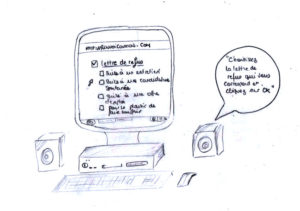 lettre de refus
suite à un entretien
suite à une candidature
spontanée
suite à une offre
d'emploi
pour le plaisir de
faire souffrir
"Choisissez
la lettre de
refus qui vous
correspond et
cliquez sur OK"